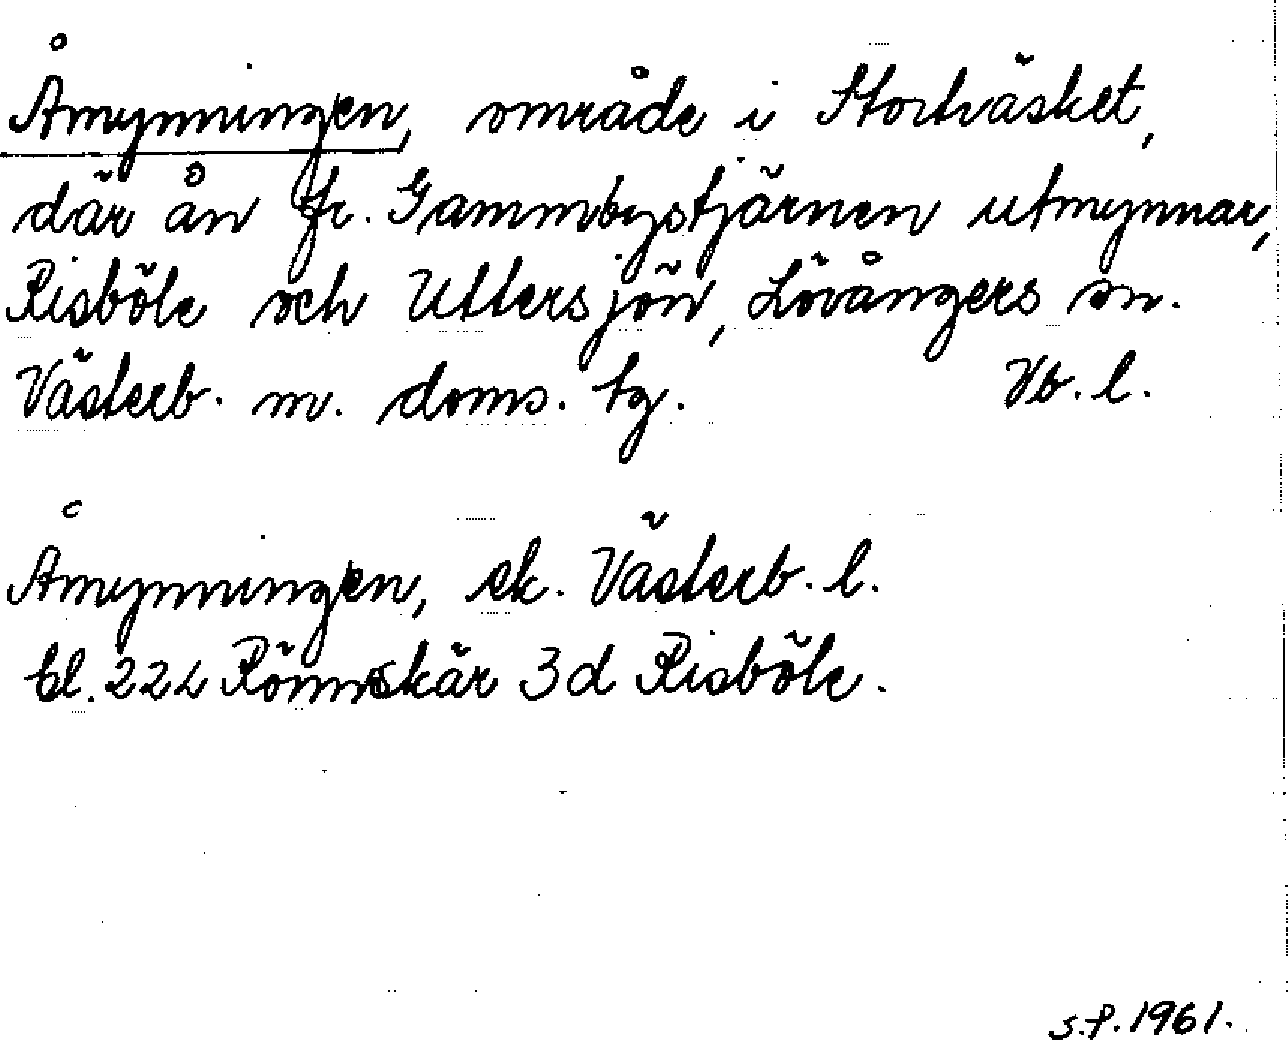 Åmynningen, område i Stortväsket,
där ån fr. Gammbystjärnen utmynnar,
Risböle och Uttersjön, Lövångers sn.
Västerb. m. doms. tg. Vb. l.
Åmynningen, ek. Västerb. l.
bl. 224 Rönnskär 3d Risböle.
S.P. 1961.